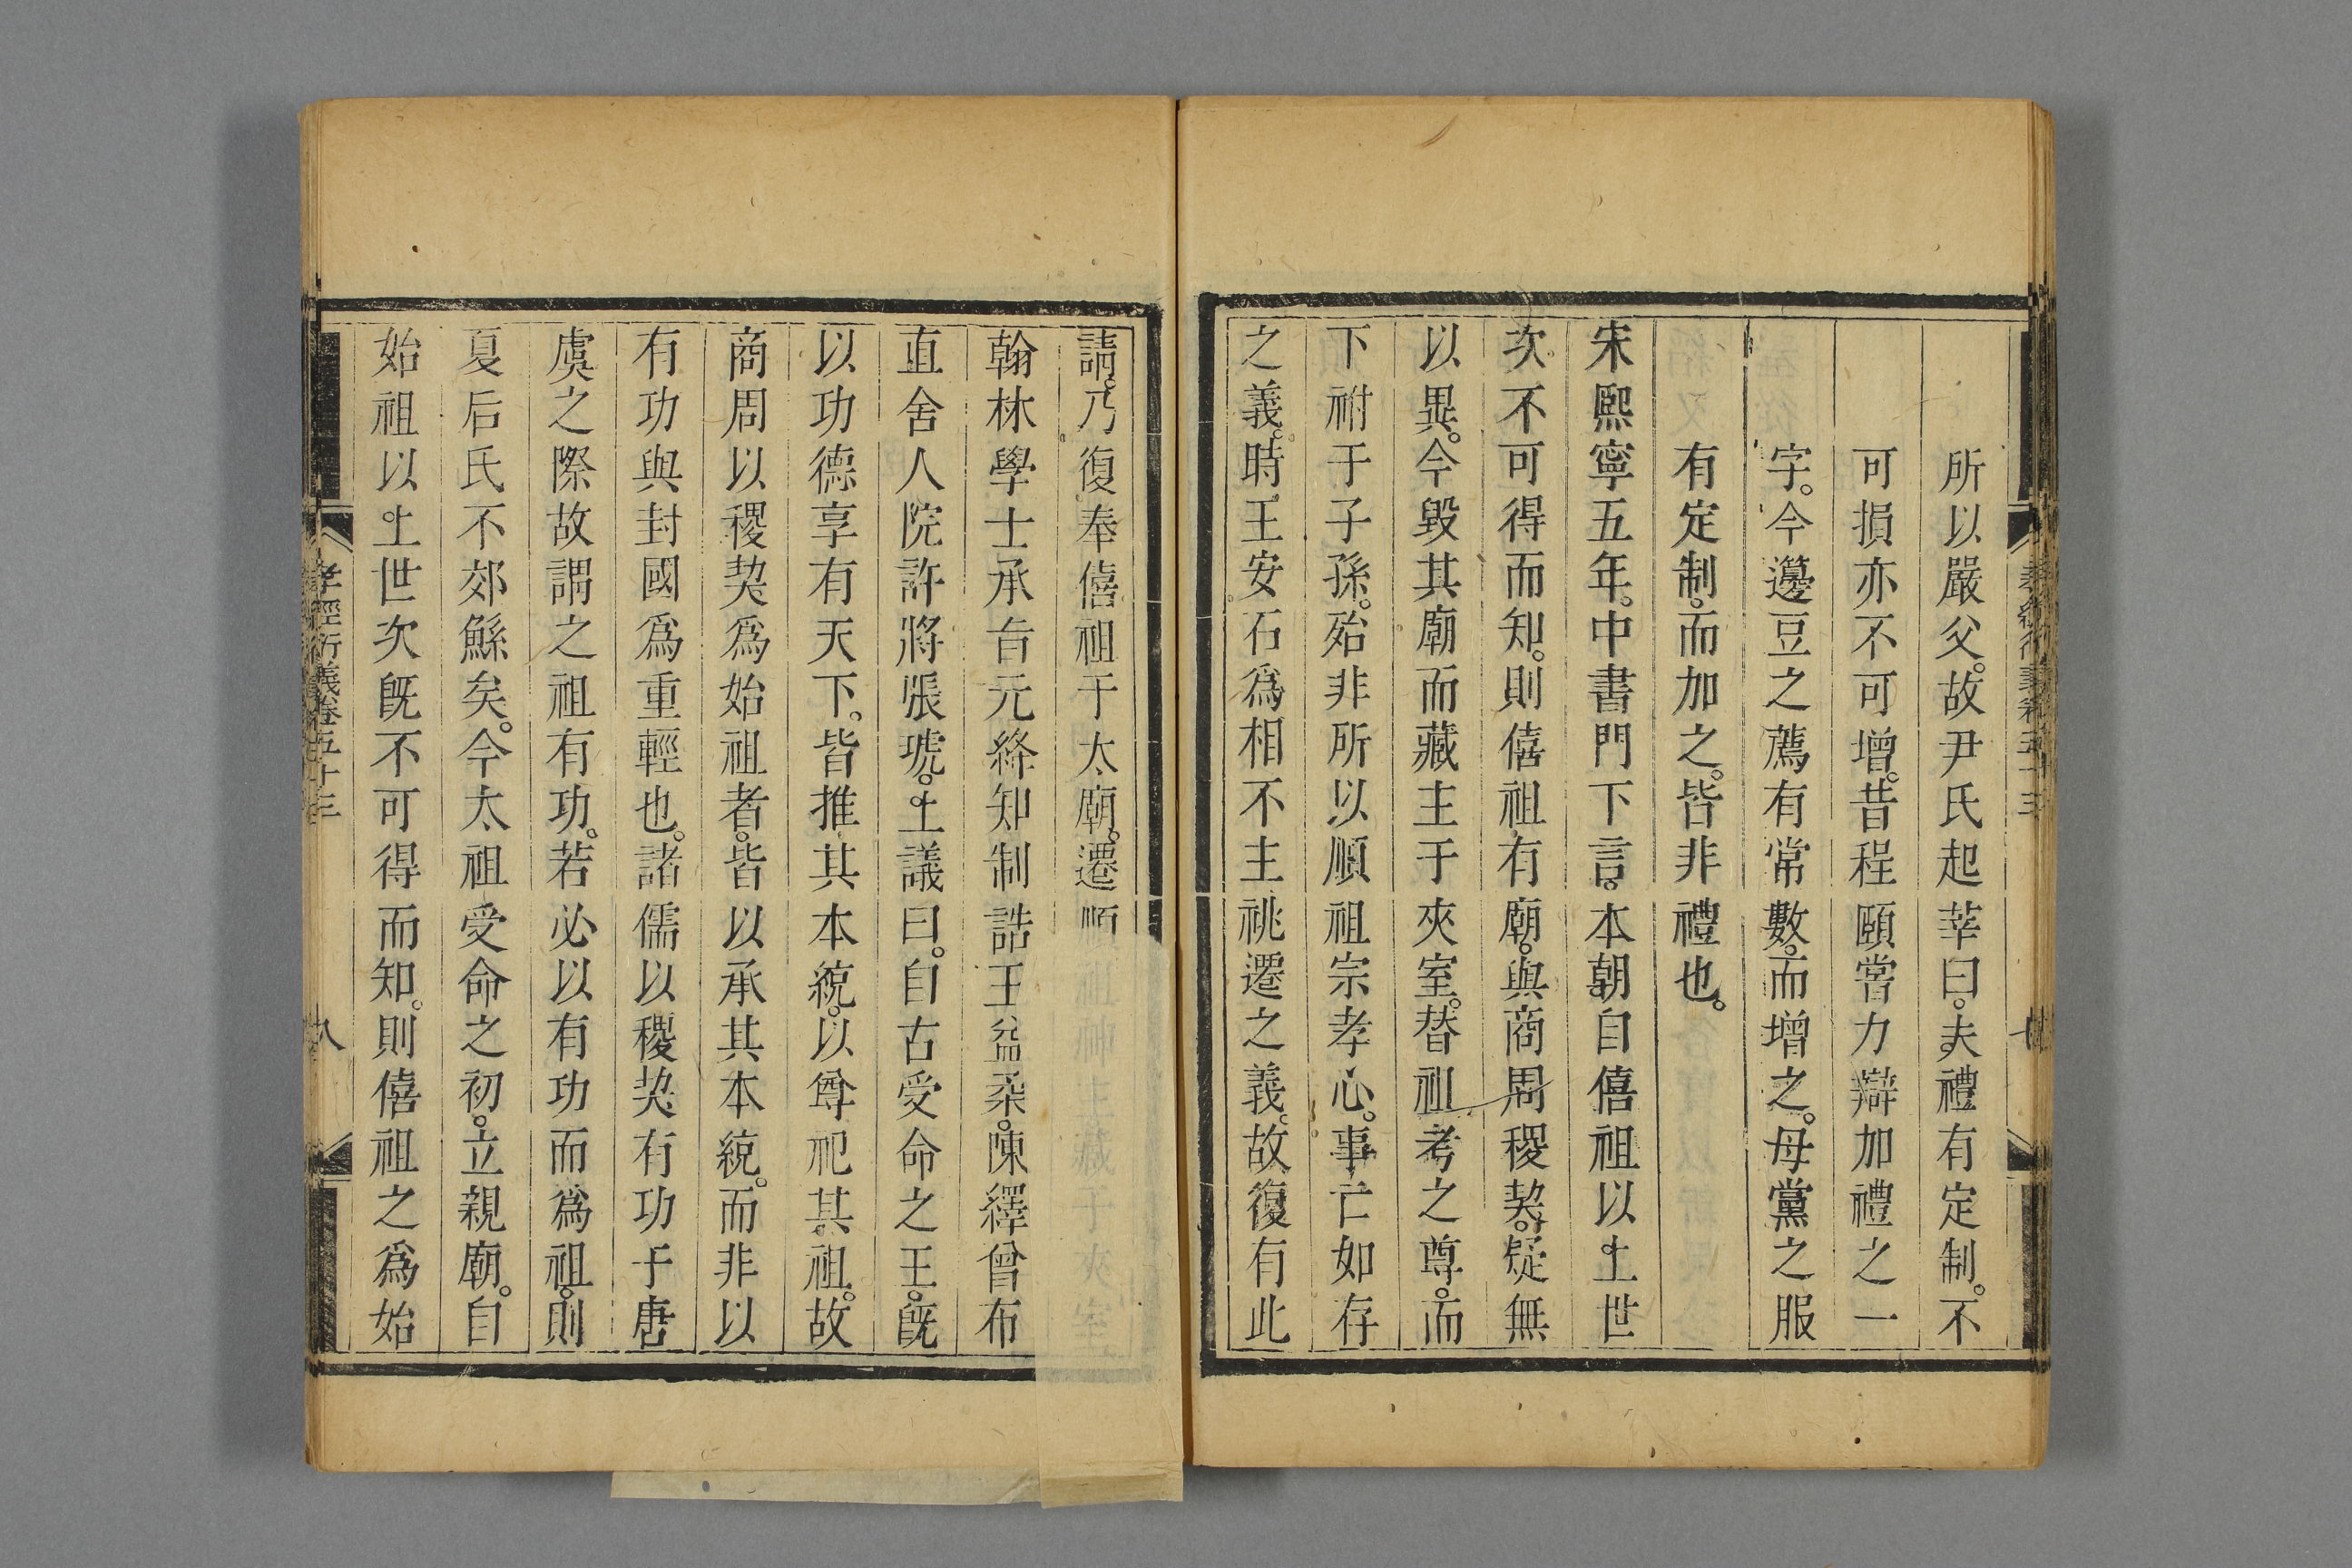 所以嚴父。故尹氏起莘曰。夫禮有定制。不
可損亦不可增。昔程頤嘗力辯加禮之一
字。今籩豆之薦有常數。而增之。母黨之服
有定制。而加之。皆非禮也。
宋熙寧五年。中書門下言。本朝自僖祖以上世
次不可得而知。則僖祖有廟。與商周稷契。疑無
以異。今毀其廟而藏主于夾室。替祖考之尊。而
下祔于子孫。殆非所以順祖宗孝心。事亡如存
之義。時王安石為相不主祧遷之義。故復有此
請。乃復奉僖祖于太廟。遷順
翰林學士承旨元絳知制誥王益柔。陳繹曾布
直舍人院許將張琥。上議曰。自古受命之王。既
以功德享有天下。皆推其本統。以尊祀其祖。故
商周以稷契爲始祖者。皆以承其本統。而非以
有功與封國爲重輕也。諸儒以稷契有功于唐
虞之際故謂之祖有功。若必以有功而爲祖。則
夏后氏不郊鯀矣。今太祖受命之初。立親廟。自
始祖以上世次既不可得而知。則僖祖之爲始
孝經衍義卷五十三
八